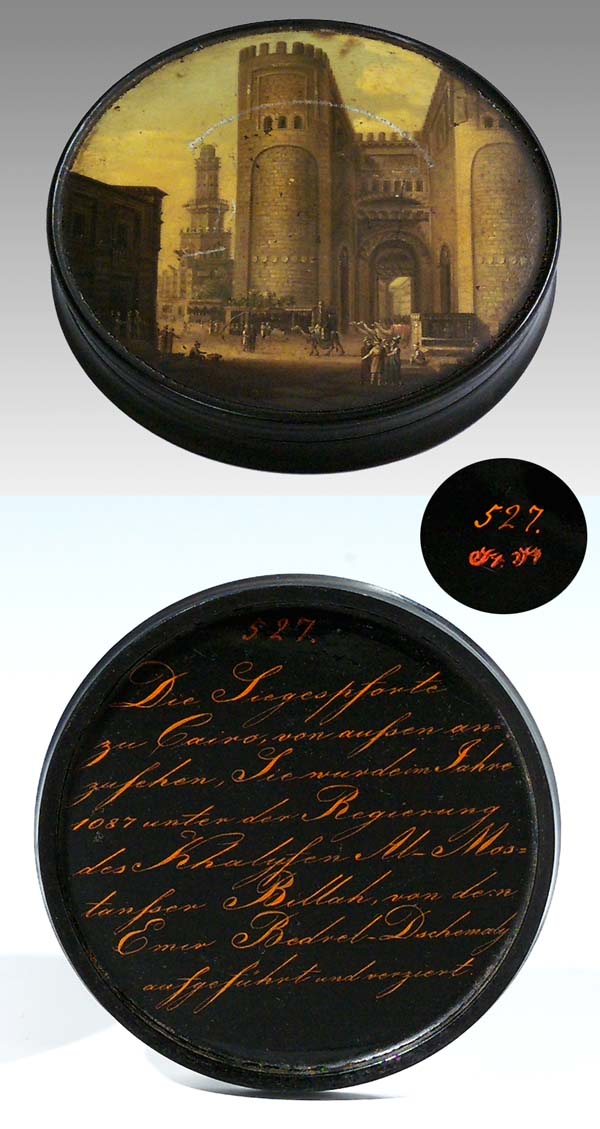 527.
527.
Die Siegespforte
zu Cairo, von aufsen an=
zusehen, Sie wurde im Jahre
1087 unter der Regierung
des Khalyfen Al-Mos=
tanfser Billah, von dem
Emir Bedrel-Dschemaly
aufgeführt und verziert.